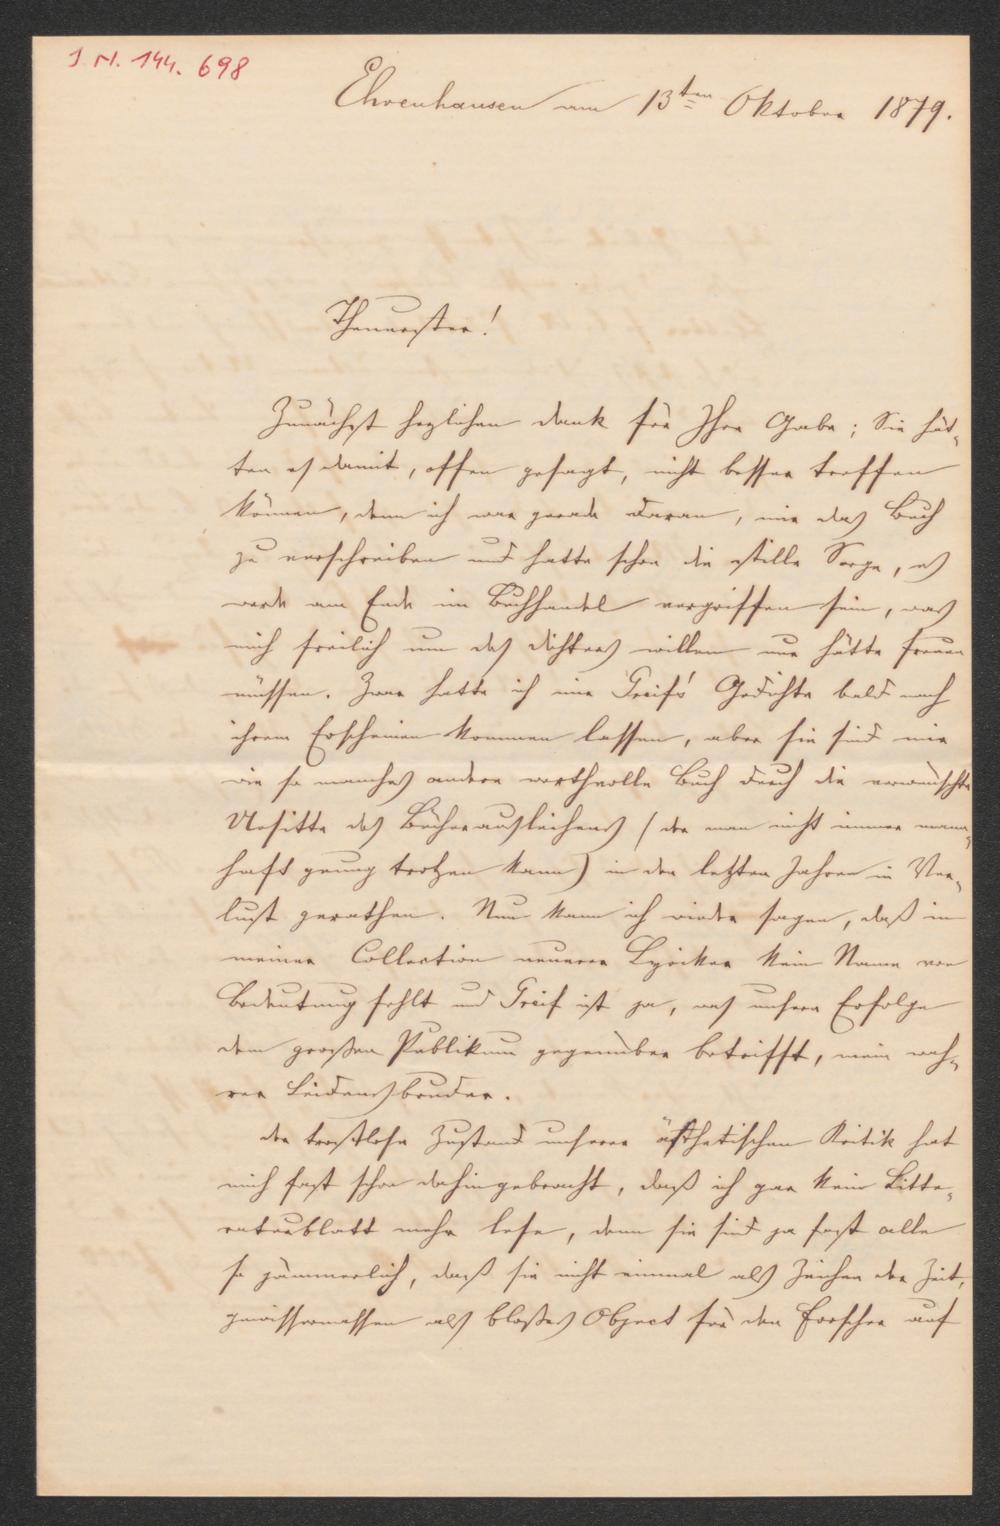 I. N. 144.698
Ehrenhausen am 13ten Oktober 1879.
Theuerster!
Zunächst herzlichen Dank für Ihre Gabe; Sie hät-
ten es damit, offen gesagt, nicht besser treffen
können, denn ich war gerade daran, mir das Buch
zu verschreiben und hatte schon die stille Sorge, es
werde am Ende im Buchhandel vergriffen sein, was
mich freilich um des Dichters willen nur hätte freuen
müssen. Zwar hatte ich mir Greif's Gedichte bald nach
ihrem Erscheinen kommen lassen, aber sie sind mir
wie so manches andere werthvolle Buch durch die verwünschte
Unsitte des Bücherausleihens (der man nicht immer mann-
haft genug trotzen kann) in den letzten Jahren in Ver-
lust gerathen. Nun kann ich wieder sagen, daß in
meiner Collection neuerer Lyriker kein Name von
Bedeutung fehlt und Greif ist ja, was unsere Erfolge
dem großen Publikum gegenüber betrifft, mein wah-
rer Leidensbruder.
Der trostlose Zustand unserer ästhetischen Kritik hat
mich fast schon dahingebracht, daß ich gar kein Litte-
raturblatt mehr lese, denn sie sind ja fast alle
so jämmerlich, daß sie nicht einmal als Zeichen der Zeit,
gewissermassen als bloßes Object für den Forscher auf